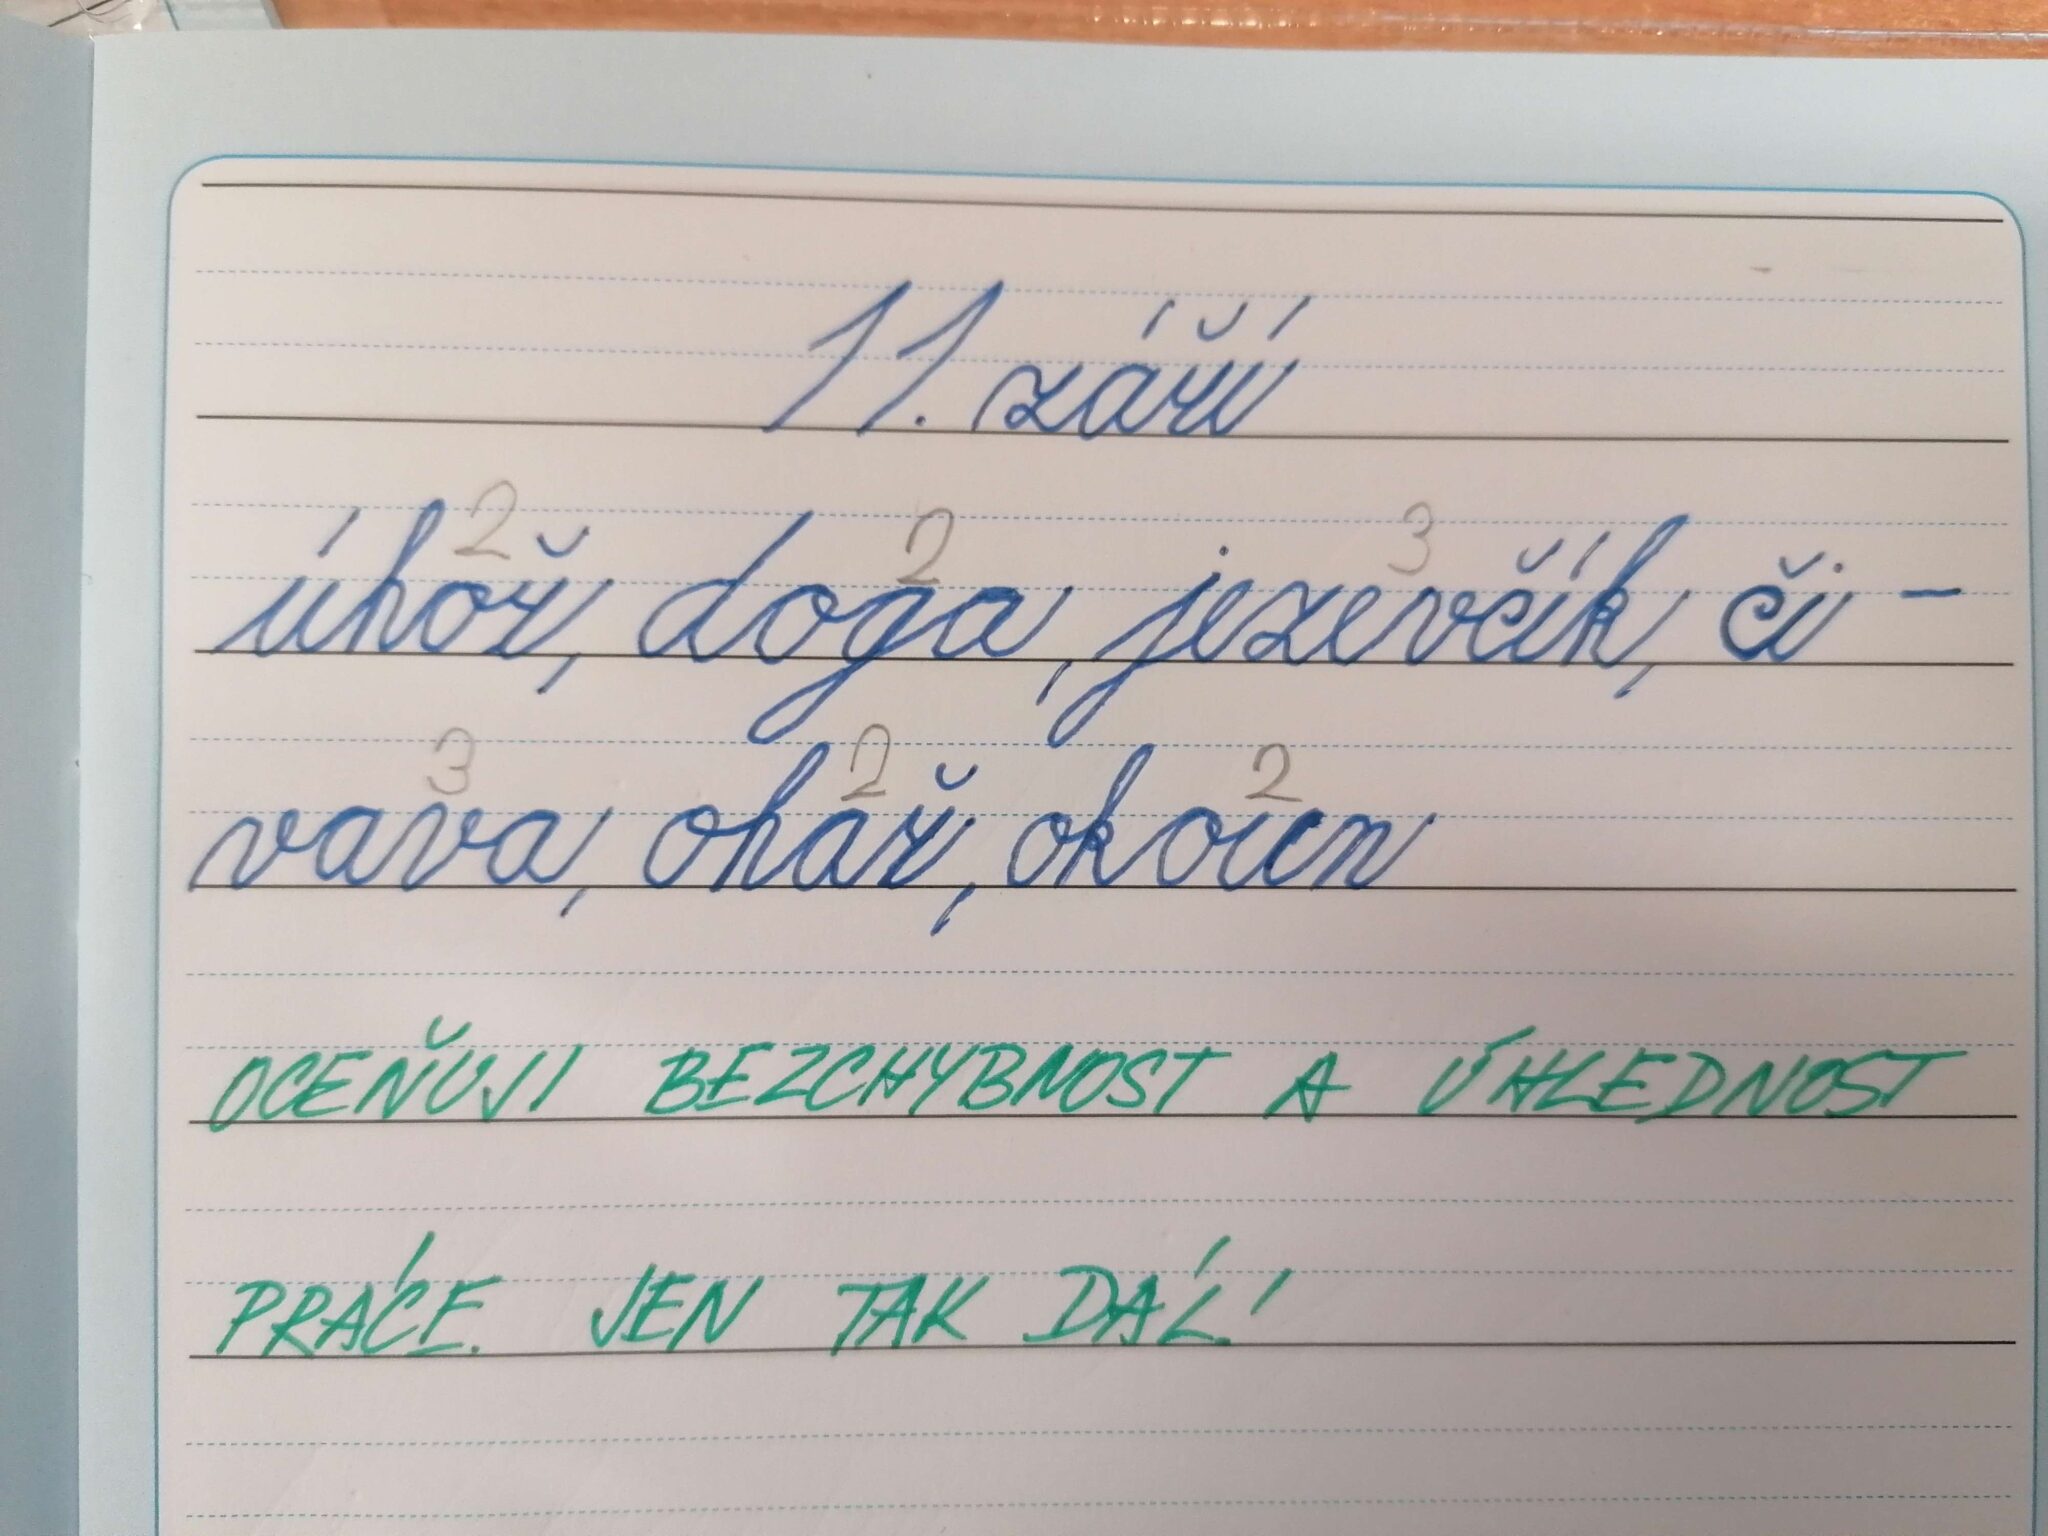 11. září
2 2 3
úhoř, doga, jezevčík, či-
3 2 2
vava, ohař, okoun
OCEŇUJI BEZCHYBNOST A ÚHLEDNOST
PRÁCE. JEN TAK DÁL!